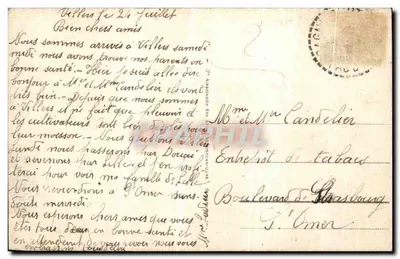 Villers le 24 Juillet
Bien chers amis
Nous sommes arrivés à Villers samedi
midi nous avons trouvé nos parents en
bonne santé - Hier je suis allée dire
bonjour à Mr et Mme Candelier ils vont
très bien - Depuis que nous sommes
à Villers il ne fait que pleuvoir et
les cultivateurs sont bien pour
leur moisson - Nous
lundi nous passerons par Douai
et sur Lille et l'on
pour voir ma famille de Lille
Nous reviendrons à St Omer sans
doute mercredi.
Nous espérons chers amis que vous
êtes tous deux en bonne santé et
en attendant de vous revoir nous vous
Mme et Mr Candelier
Entrepôt de tabacs
Boulevard de Strasbourg
St Omer